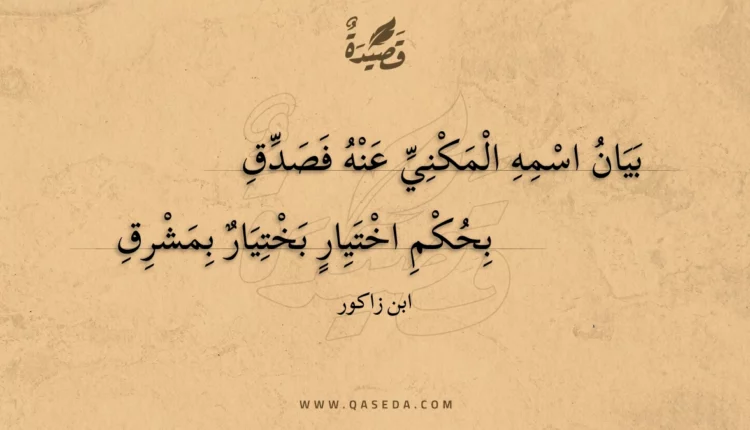 قَصِيْدَةٌ
بَيَانُ اسْمِهِ الْمَكْنِيِّ عَنْهُ فَصَدِّقِ
بِحُكْمِ اخْتَيِارٍ بَخْتِيَارٌ بِمَشْرِقِ
ابن زاكور
WWW.QASEDA.COM